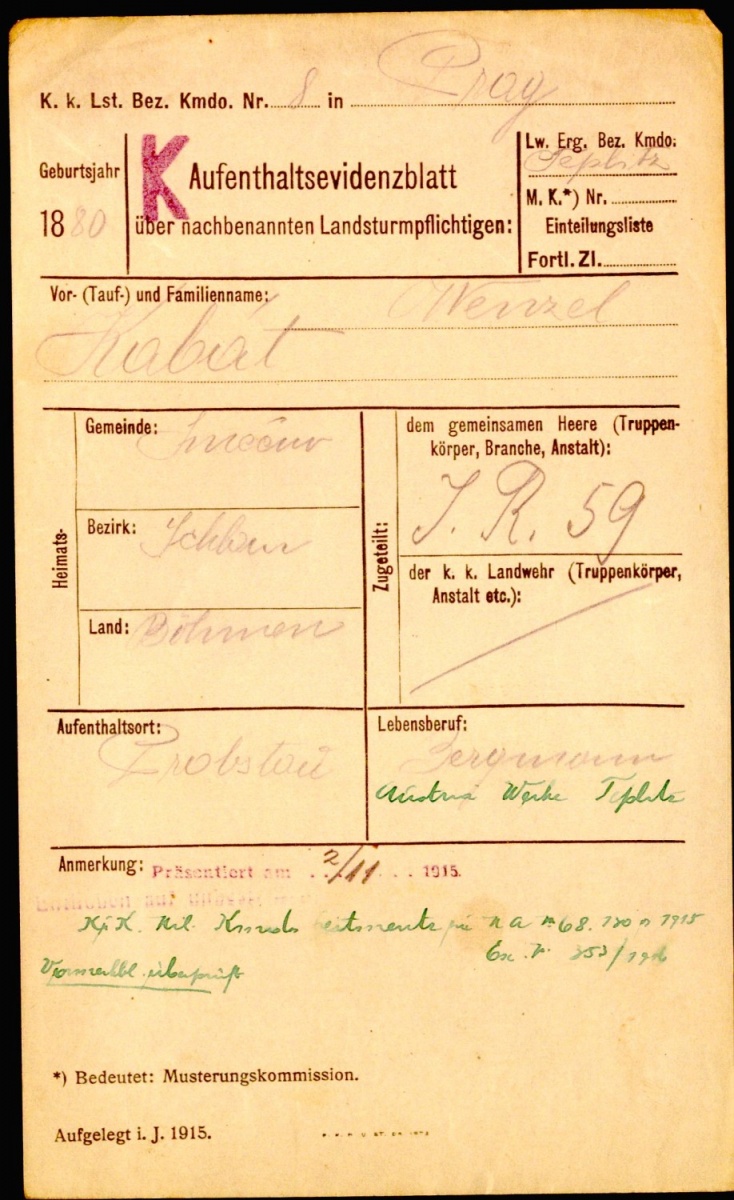 K. k. Lst. Bez. Kmdo. Nr. 8 in Prag
Geburtsjahr
1880
K
Aufenthaltsevidenzblatt
über nachbenannten Landsturmpflichtigen:
Lw. Erg. Bez. Kmdo:
Teplitz
M. K.*) Nr.
Einteilungsliste
Fortl. Zl.
Vor- (Tauf-) und Familienname:
Wenzel
Kabát
Heimats-
Gemeinde: Smečno
Bezirk: Schlan
Land: Böhmen
Zugeteilt:
dem gemeinsamen Heere (Truppen-
körper, Branche, Anstalt):
I. R. 59
der k. k. Landwehr (Truppenkörper,
Anstalt etc.):
Aufenthaltsort:
Probstau
Lebensberuf:
Bergmann
Austria Werke Teplitz
Anmerkung: Präsentiert am 2/11 1915.
Enthoben auf
K. K. Mil. Kmdo 68. 1915
353/
Vormerkbl. überprüft
*) Bedeutet: Musterungskommission.
Aufgelegt i. J. 1915.